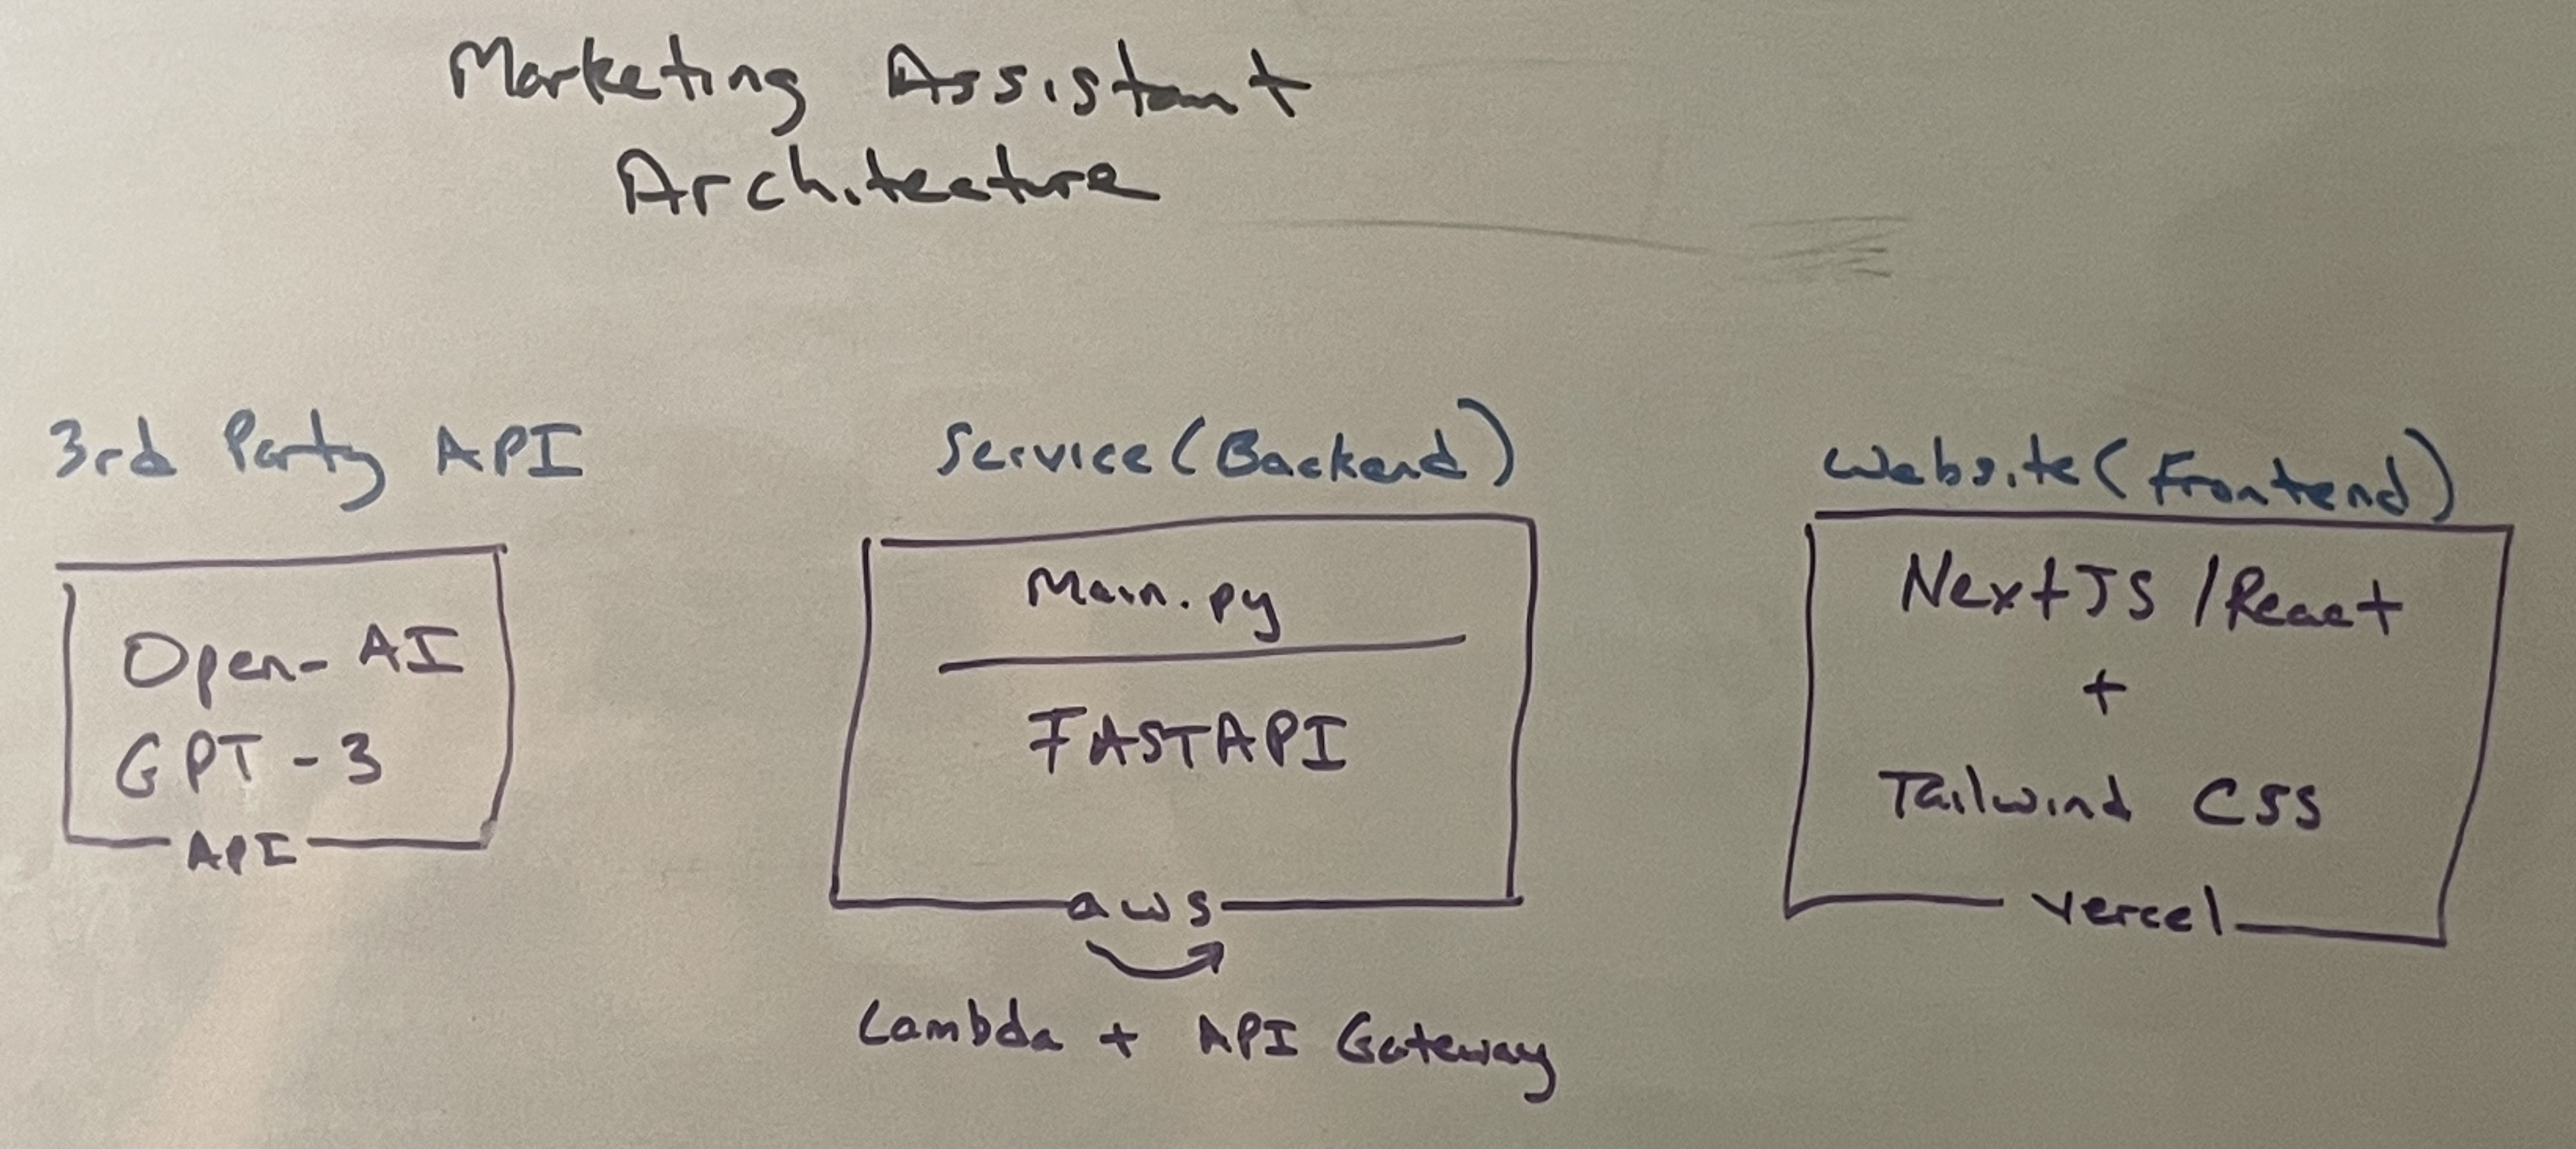 Marketing Assistant
Architecture
3rd Party API
Open-AI
GPT-3
API
Service (Backend)
Main.py
FASTAPI
aws
Lambda + API Gateway
Website (Frontend)
NextJS / React
+
Tailwind CSS
Vercel